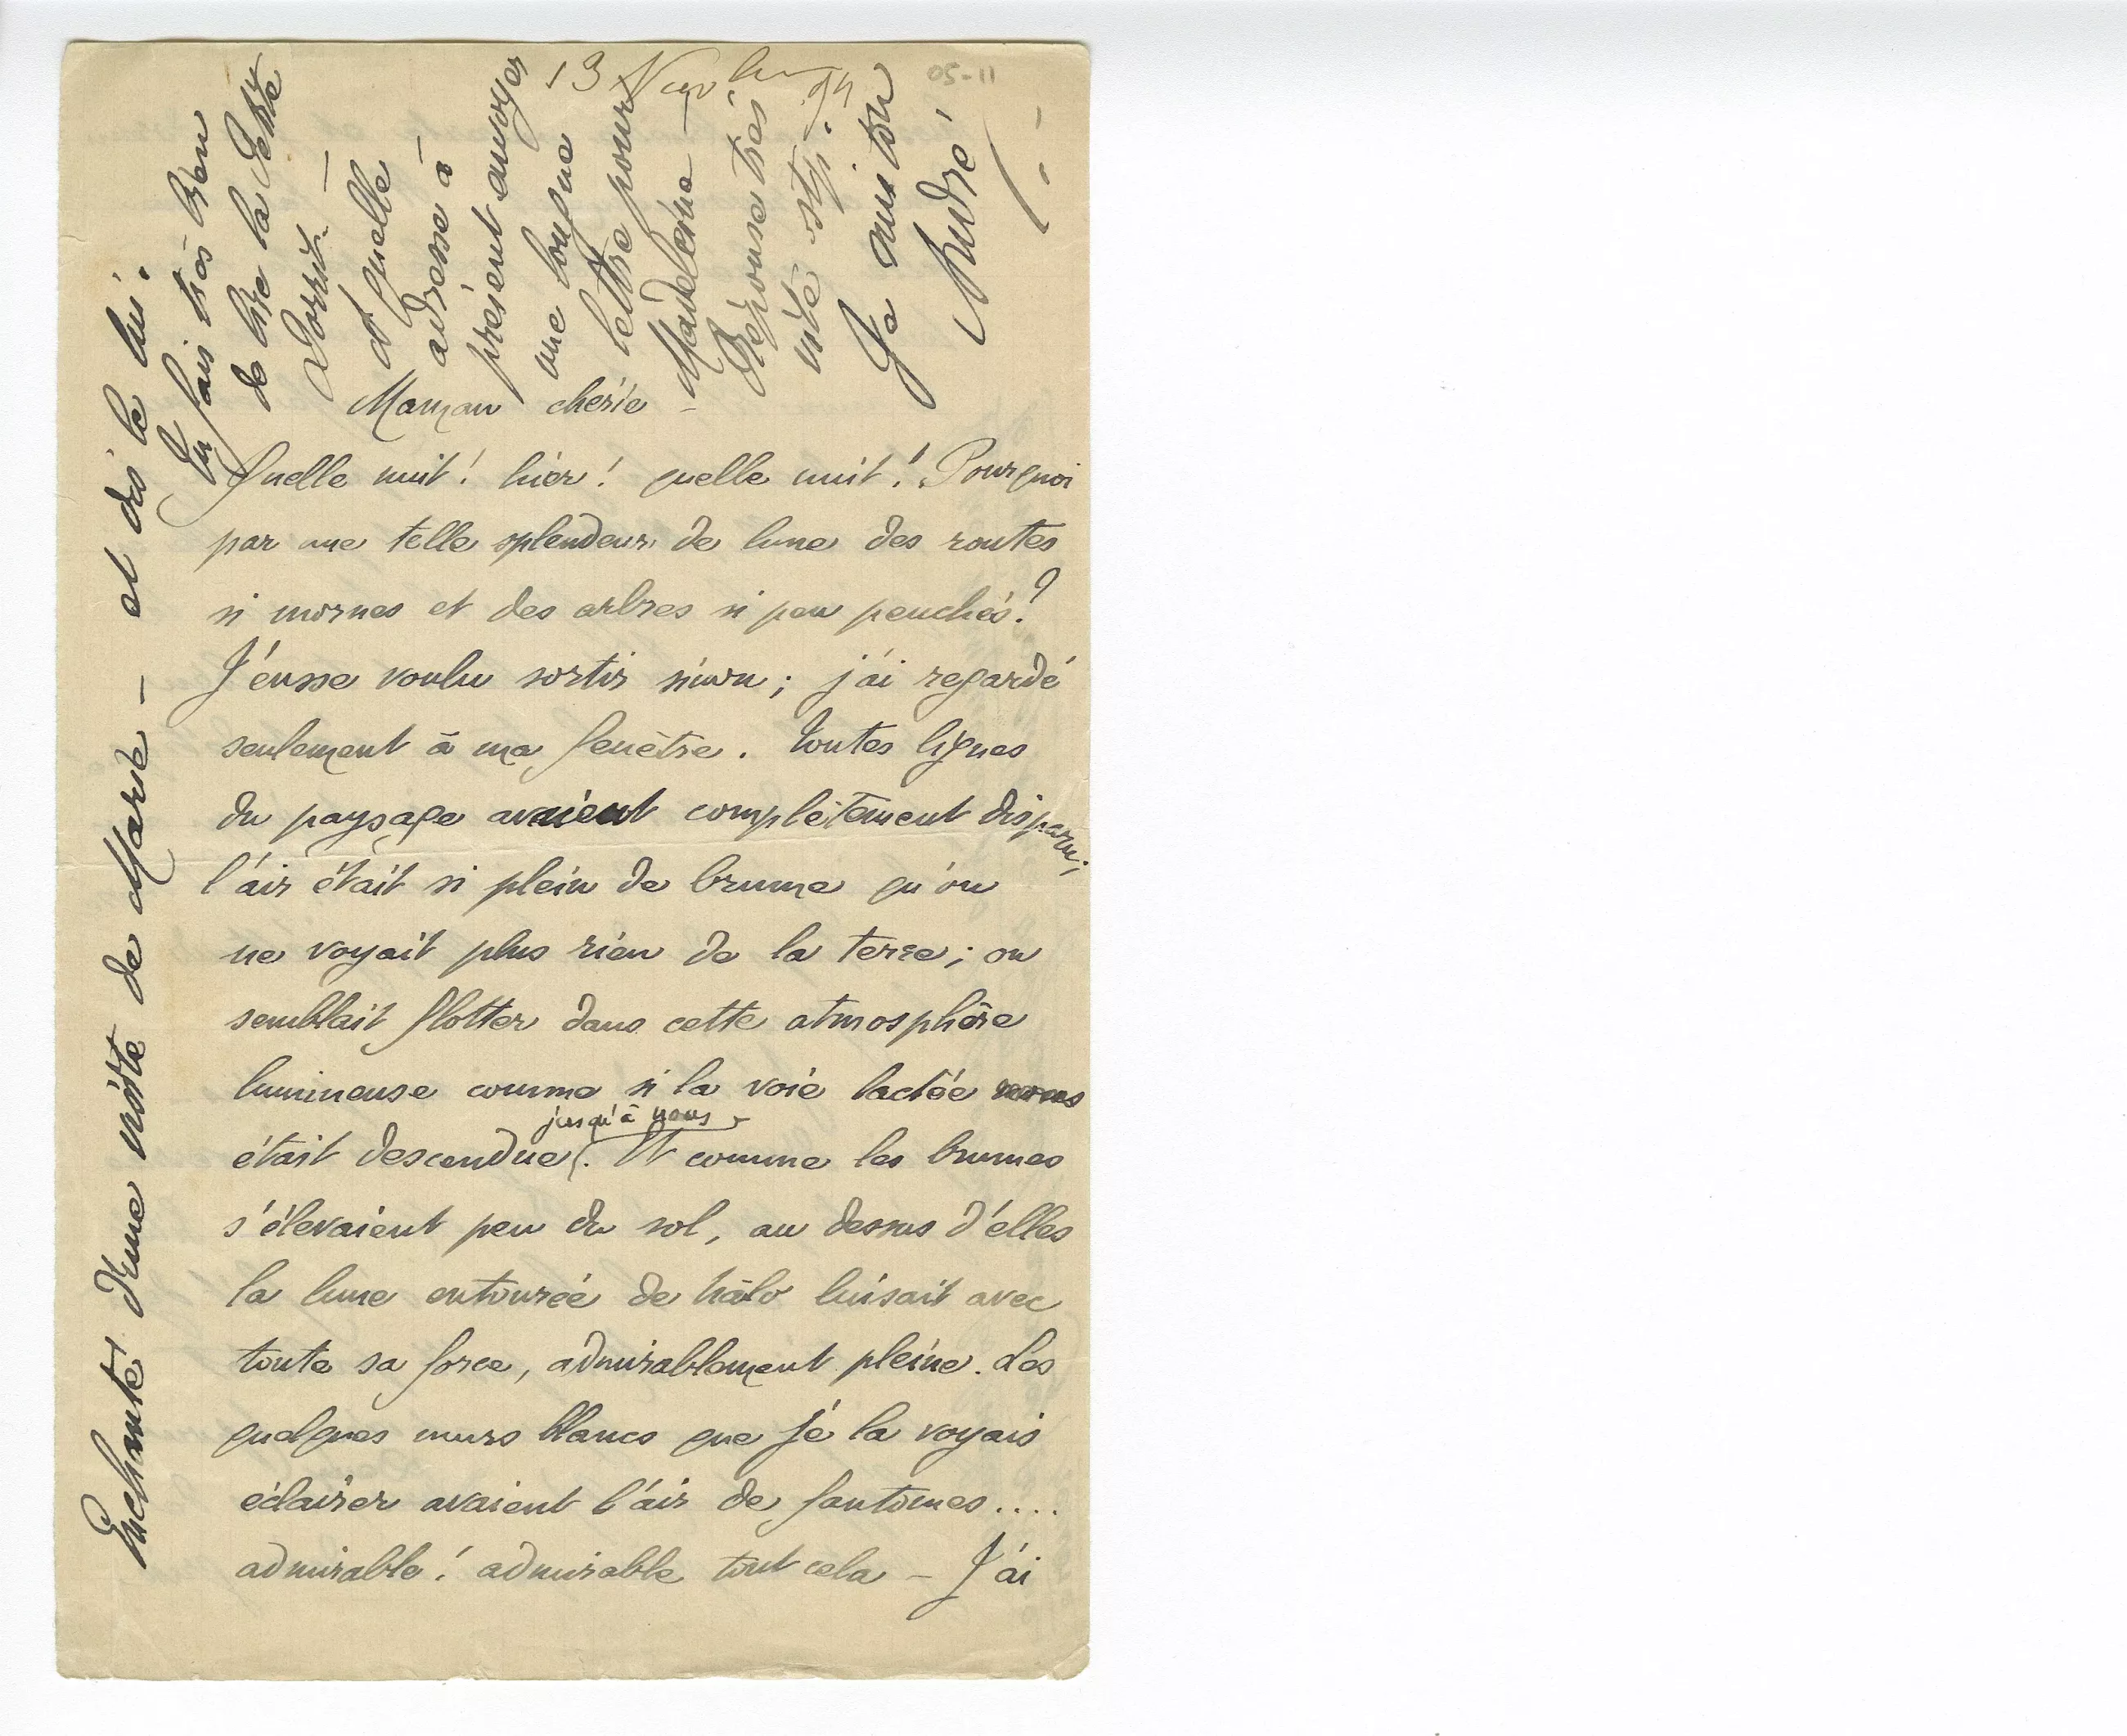 13 Nov.bre 94
05-11
Maman chérie –
Quelle nuit! hier! quelle nuit! Pourquoi
par une telle splendeur de lune des routes
si mornes et des arbres si peu penchés?
J'eusse voulu sortir sinon; j'ai regardé
seulement à ma fenêtre. Toutes lignes
du paysage avaient complètement disparu;
l'air était si plein de brume qu'on
ne voyait plus rien de la terre; on
semblait flotter dans cette atmosphère
lumineuse comme si la voie lactée
était descendue jusqu'à nous. Et comme les brumes
s'élevaient peu du sol, au dessus d'elles
la lune entourée de hâlo luisait avec
toute sa force, admirablement pleine. Les
quelques murs blancs que je la voyais
éclairer avaient l'air de fantômes....
admirable! admirable tout cela – J'ai
Enchanté d'une visite de Marie – et dis le lui.
Tu fais très bien
de lire la Petite
Dorrit. –
et quelle
adresse à
présent envoyer
une longue
lettre pour
Madeleine –
Réponse très
vite stp.
Je suis ton
André